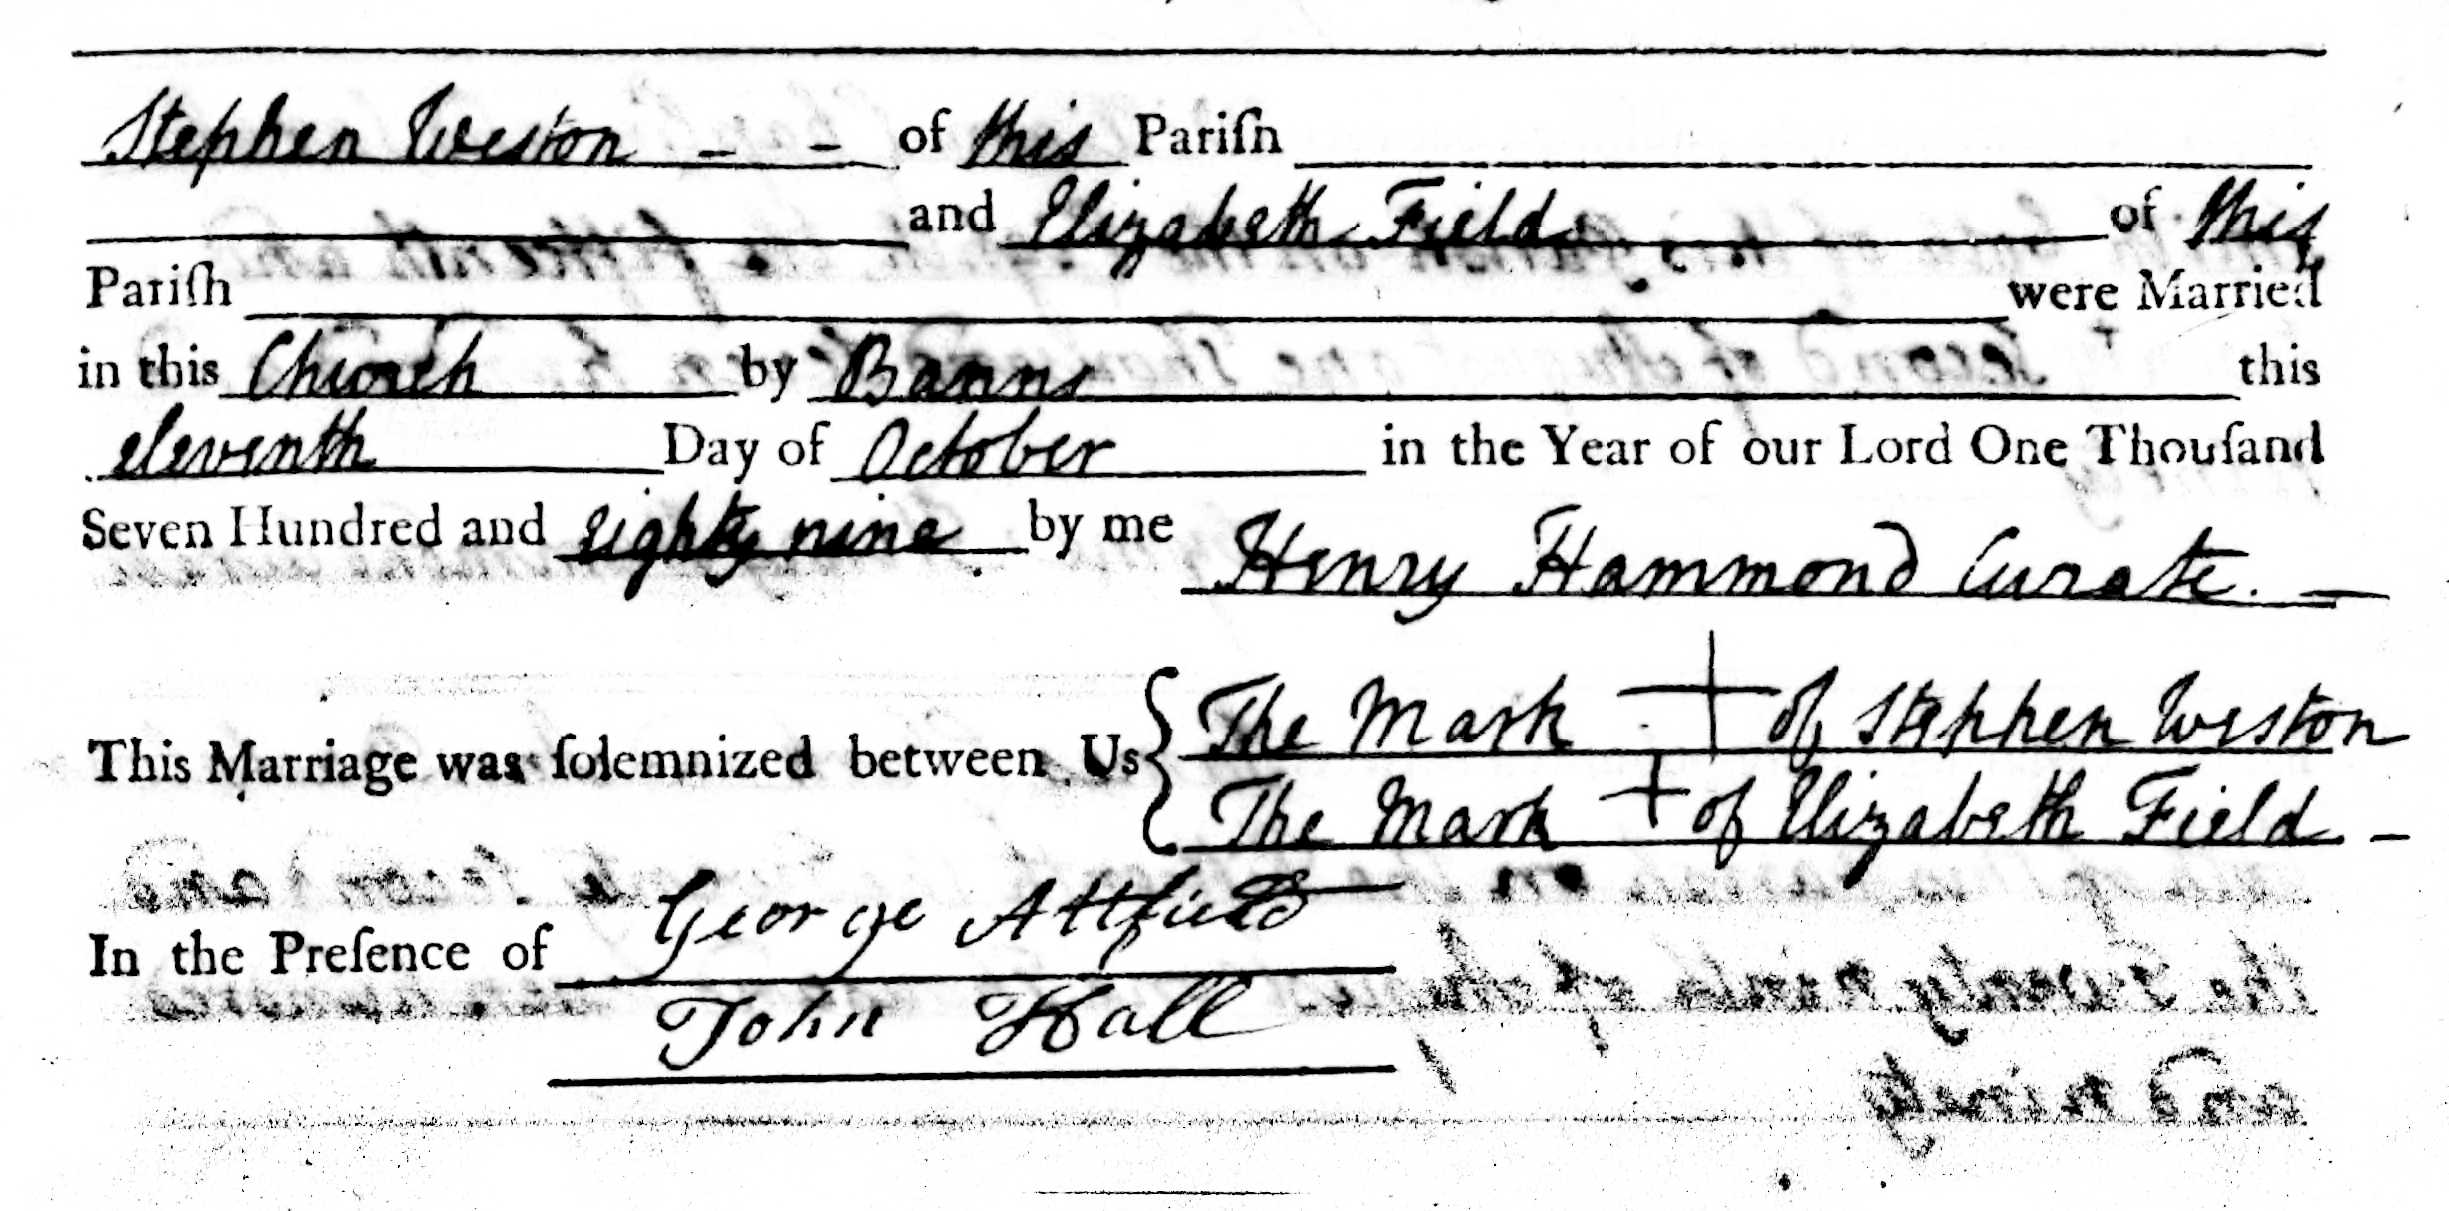 Stephen Weston - - of this Pariſh
and Elizabeth Field of this
Pariſh were Married
in this Church by Banns this
eleventh Day of October in the Year of our Lord One Thouſand
Seven Hundred and Eighty nine by me Henry Hammond Curate. -
This Marriage was ſolemnized between Us { The Mark + of Stephen Weston
The Mark + of Elizabeth Field -
In the Preſence of George Attfield
John Hall